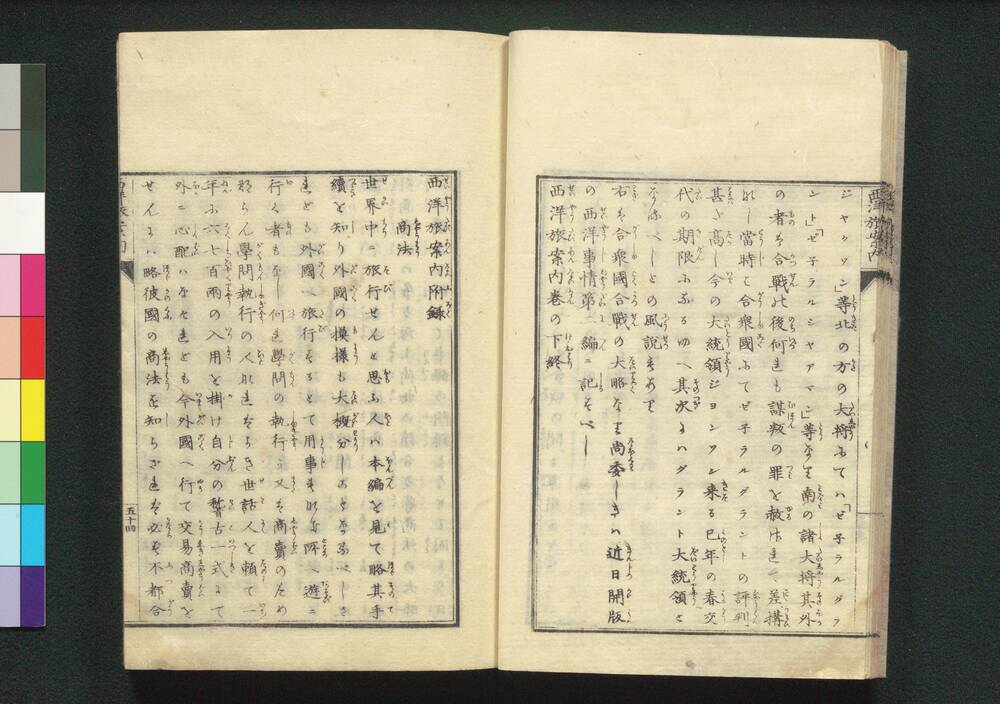 ジャクソン」等北の方の大将にてハ「ゼ子ラルグラ
ント」「ゼ子ラルシャアマン」等なり南の諸大将其外
の者も合戦の後何れも謀叛の罪を赦され差構
なし當時ハ合衆國にてゼ子ラルグラントの評判
甚タ高し今の大統領ジヨンソン来る巳年の春交
代の期限になるゆへ其次にハグラント大統領と
なるべしとの風説もあり
右ハ合衆國合戦の大略なり尚委しきハ近日開版
の西洋事情第二編ニ記すべし
西洋旅案内巻の下終
西洋旅案内
西洋旅案内附録
商法
世界中ニ旅行せんと思ふ人ハ本編を見て略其手
續を知り外國の模様も大概分るべし
されども外國へ旅行するとて用事もなく所々遊ニ
行く者もなし何れ學問の執行又ハ商賣のため
ならん學問執行の人なれバよき世話人を頼て一
年ニ六七百兩の入用を掛け自分の稽古一式にて
外ニ心配ハなけれども今外國へ行て交易商賣を
せんにハ略彼國の商法を知らざれバ必ず不都合
五十四